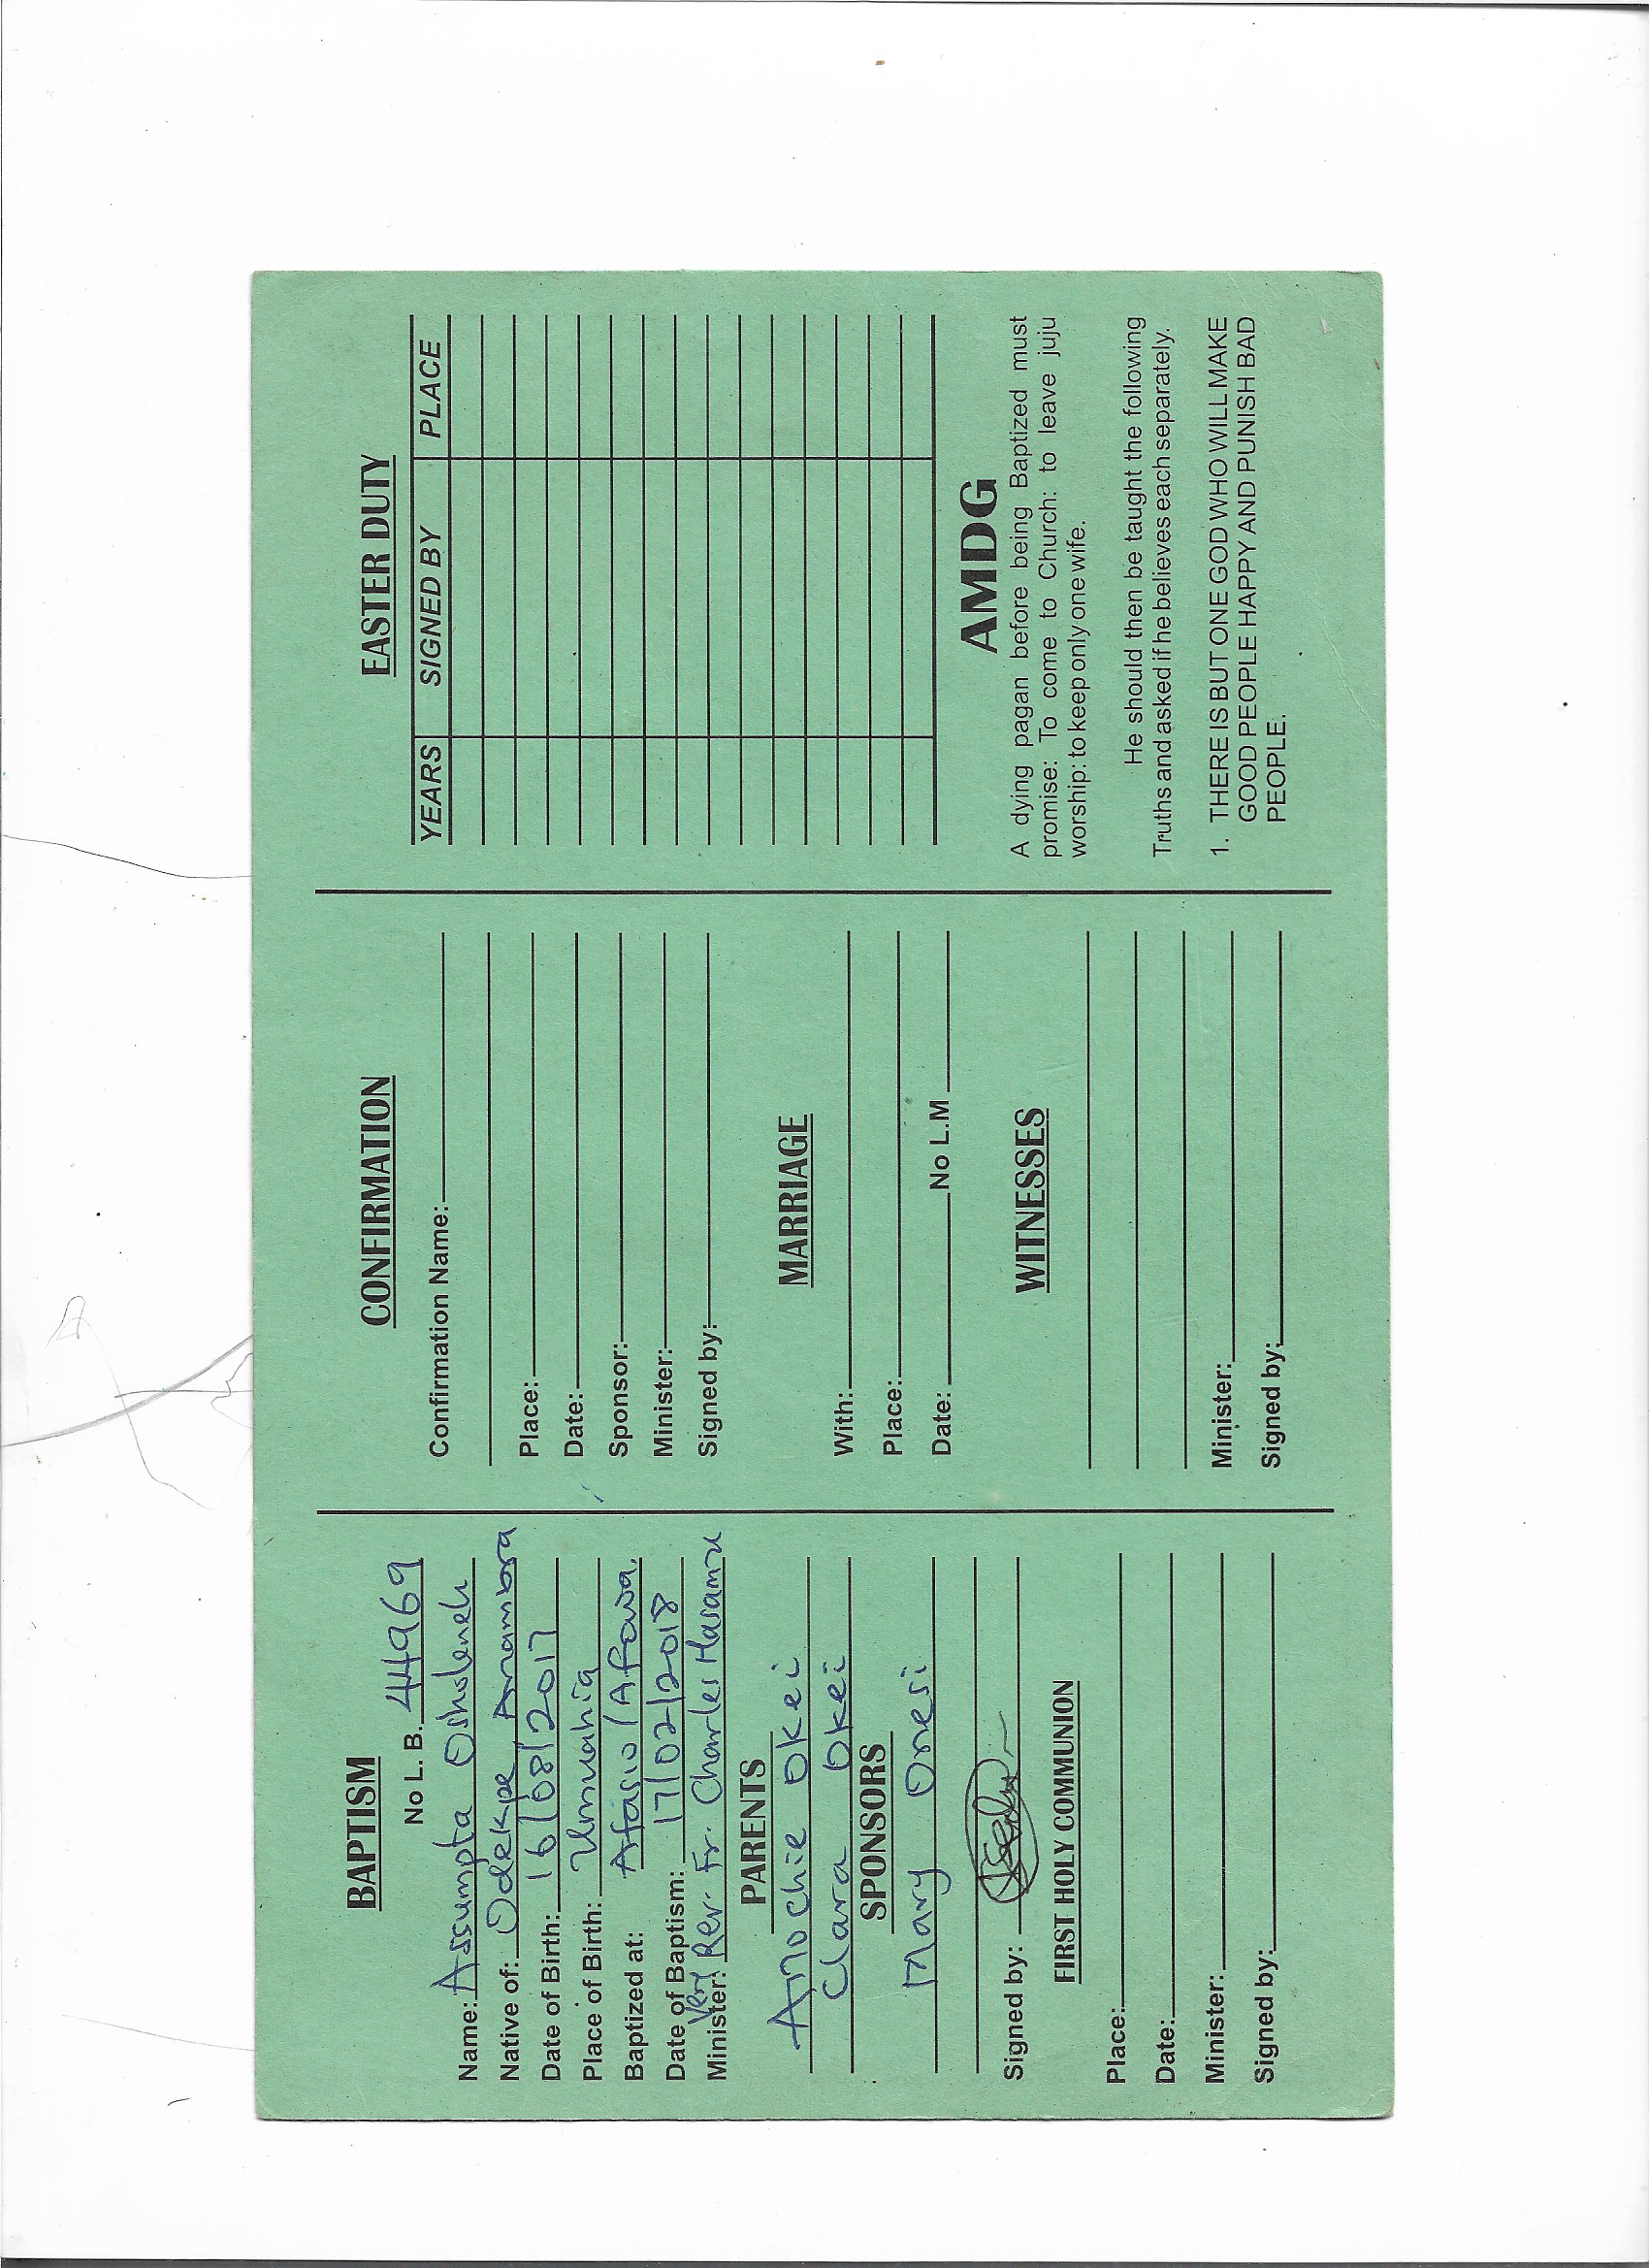 BAPTISM
No L. B. 44969
Name: Assumpta Osholeneh
Native of: Odekpe Anambra
Date of Birth: 16/08/2017
Place of Birth: Umuahia
Baptized at: Afasio/Afowa.
Date of Baptism: 17/02/2018
Minister: Very Rev. Fr. Charles Hasamu
PARENTS
Amochie Okei
Clara Okei
SPONSORS
Mary Onesi
Signed by:
FIRST HOLY COMMUNION
Place:
Date:
Minister:
Signed by:
CONFIRMATION
Confirmation Name:
Place:
Date:
Sponsor:
Minister:
Signed by:
MARRIAGE
With:
Place:
Date: No L.M
WITNESSES
Minister:
Signed by:
EASTER DUTY
YEARS SIGNED BY PLACE
AMDG
A dying pagan before being Baptized must
promise: To come to Church: to leave juju
worship: to keep only one wife.
He should then be taught the following
Truths and asked if he believes each separately.
1. THERE IS BUT ONE GOD WHO WILL MAKE
GOOD PEOPLE HAPPY AND PUNISH BAD
PEOPLE.